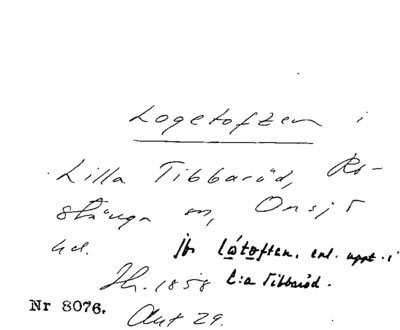 Logetoften i
Lilla Tibbaröd, Rö-
stånga sn, Onsjö
hd. jfr Låtoften, enl. uppt. i
Jh. 1858 L:a Tibbaröd.
Nr 8076. Akt 29.